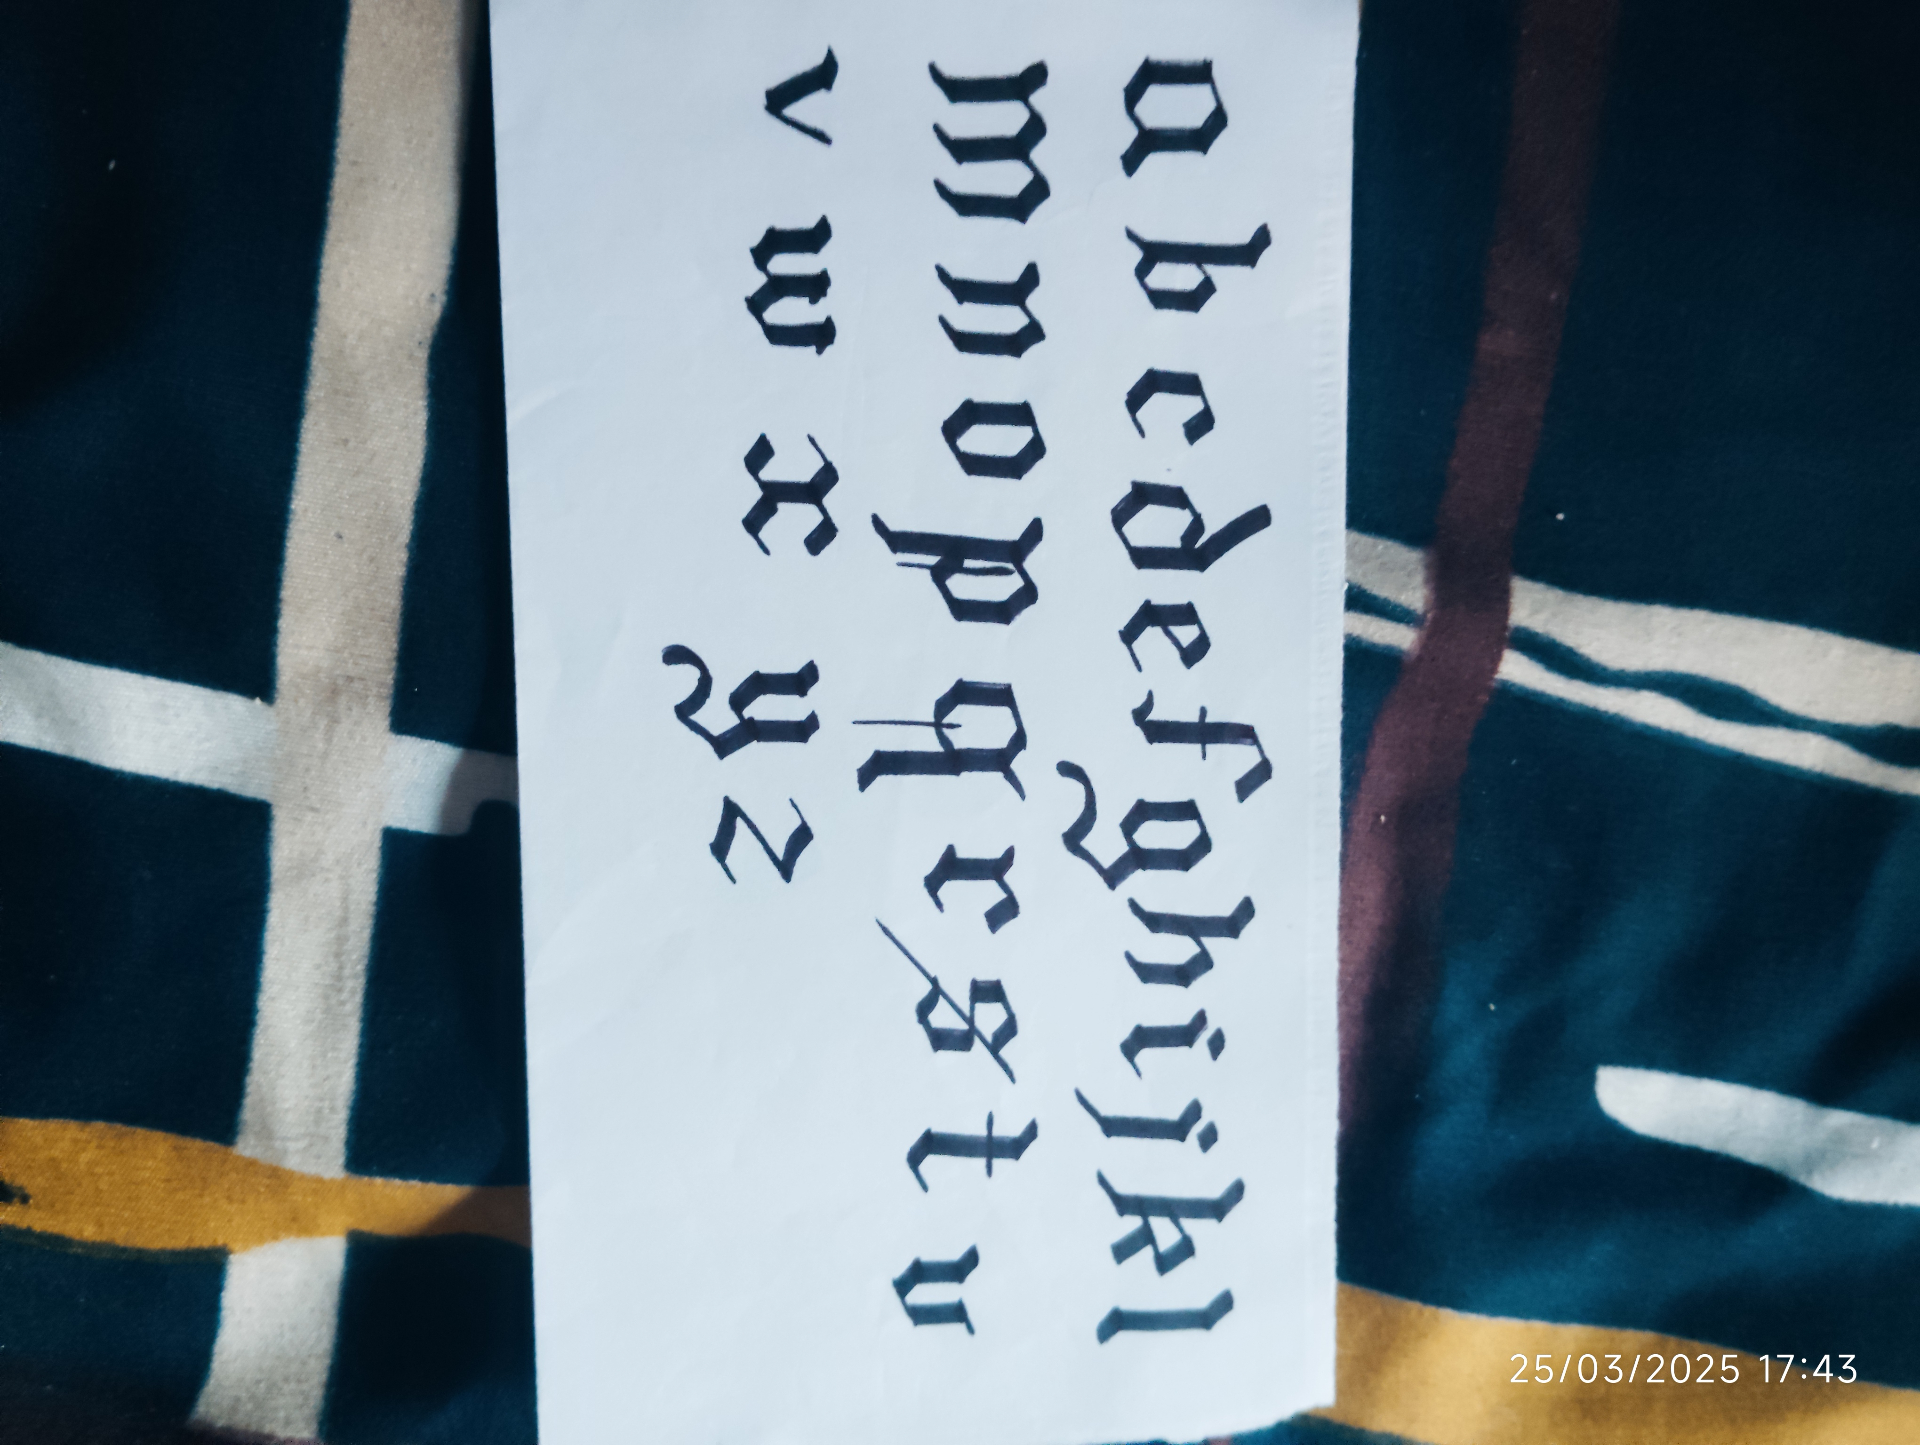 a b c d e f g h i j k l
m n o p q r s t u
v w x y z
25/03/2025 17:43